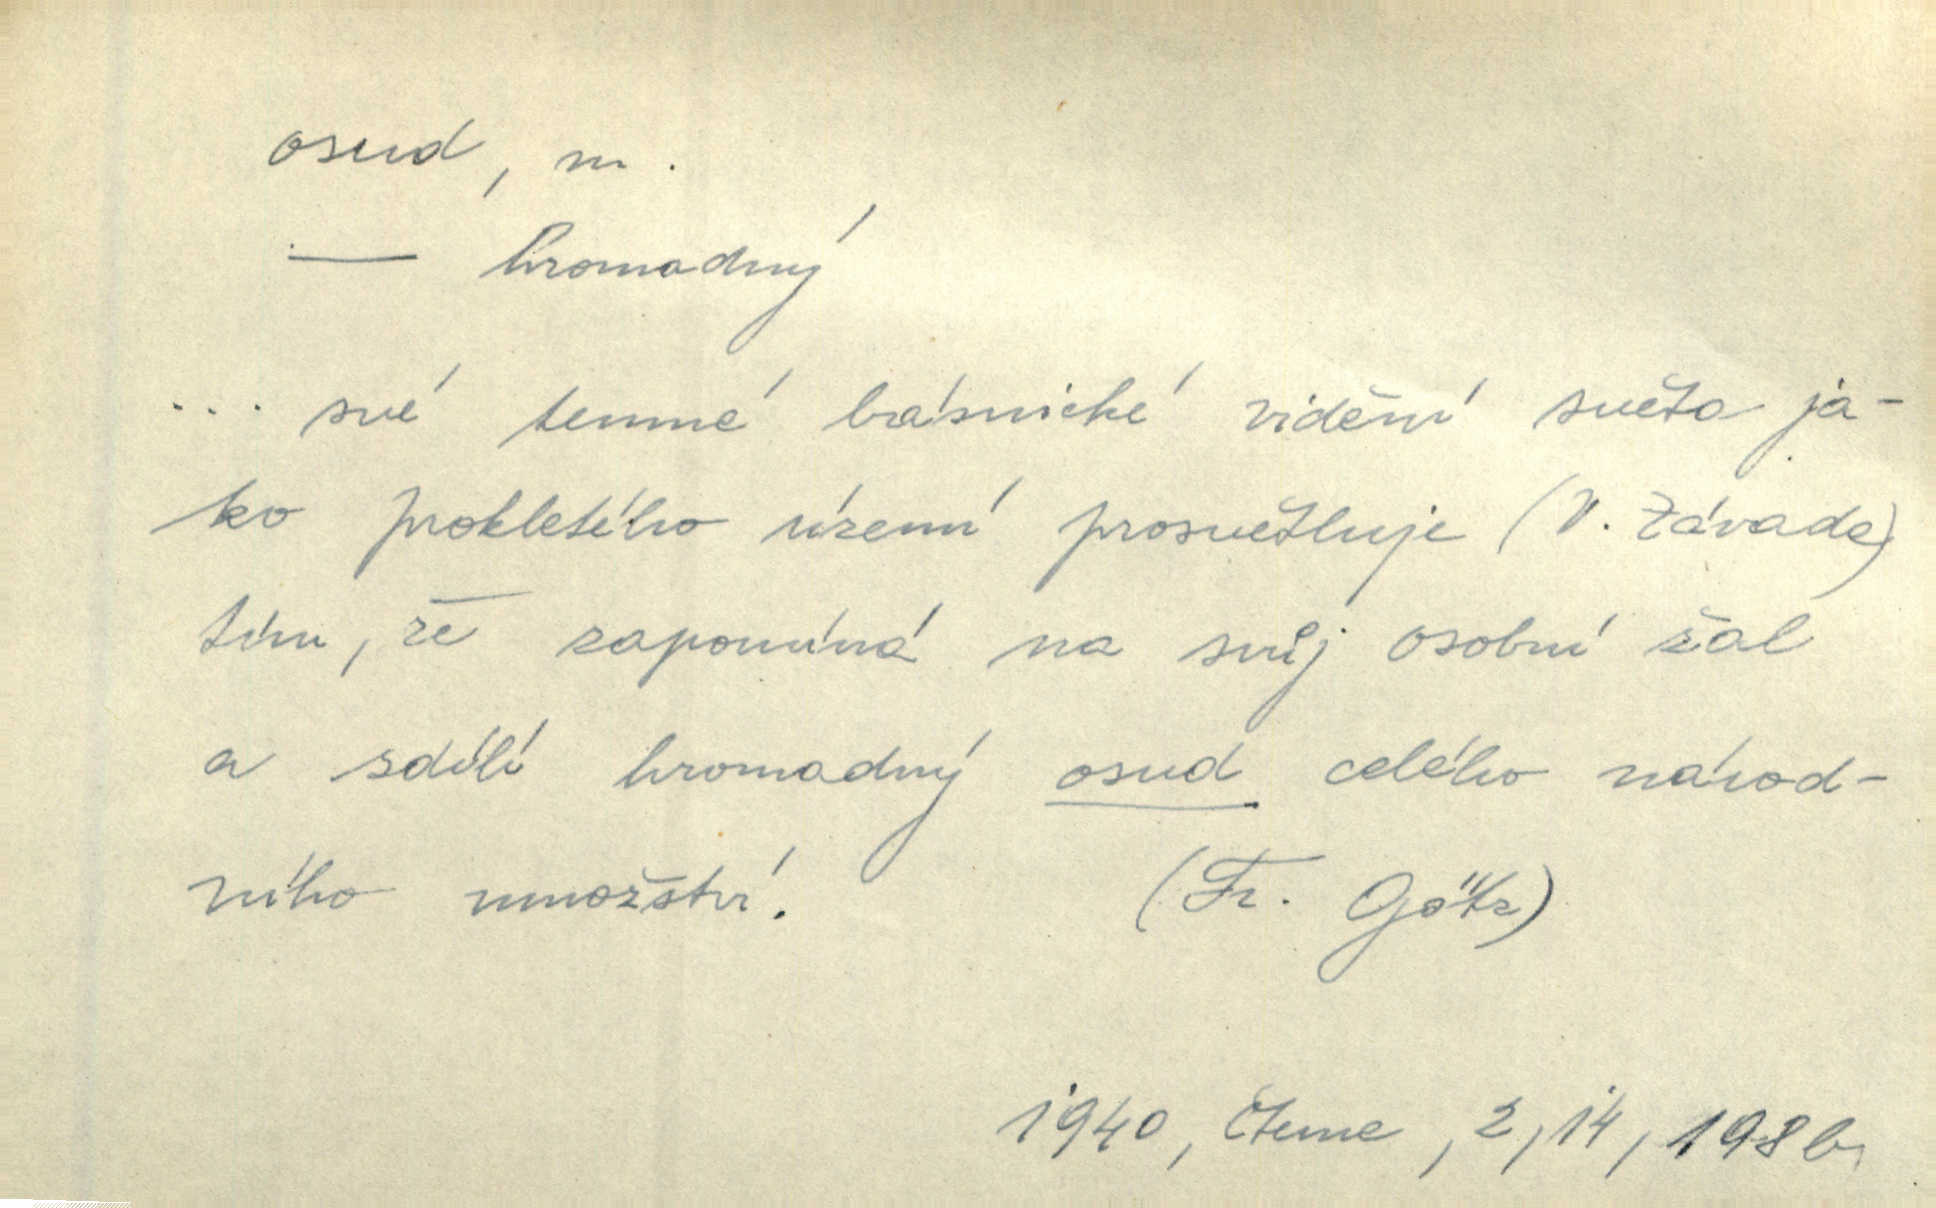 osud, m.
— hromadný
... své temné básnické vidění světa já-
ko prokletého území prosvětluje (V. Závada)
tím, že zapomíná na svůj osobní žal
a sdílí hromadný osud celého národ-
ního množství. (Fr. Götz)
1940, Čteme, 2, 14, 198b